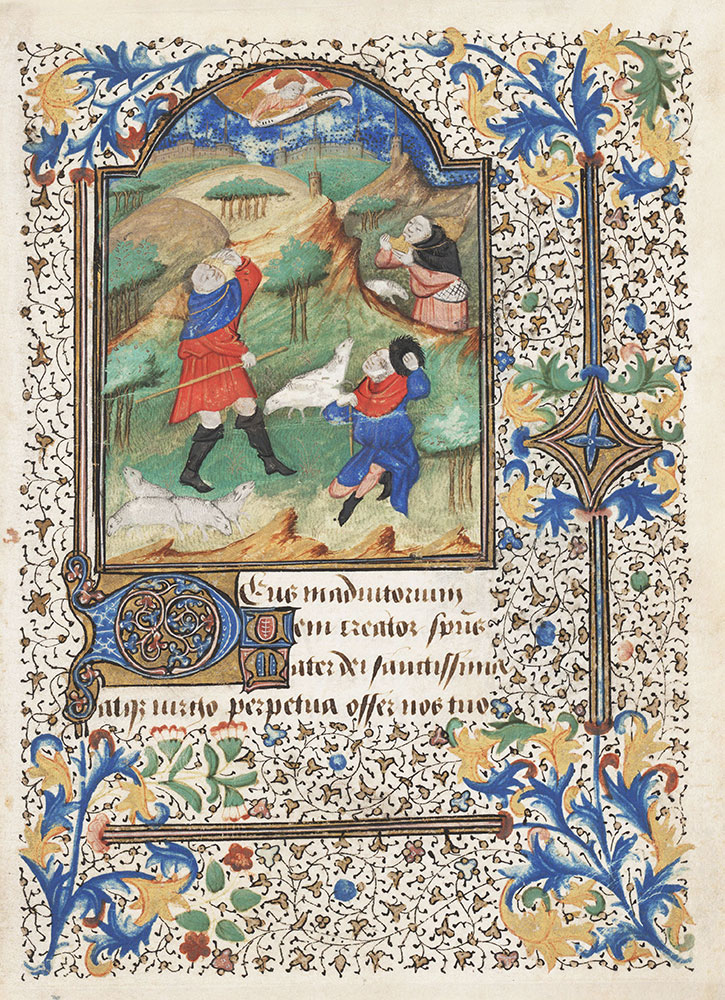 Deus in adiutorium
Veni creator sp̄us
Mater dei sanctissima
atqꝫ uirgo perpetua offer nos tuo